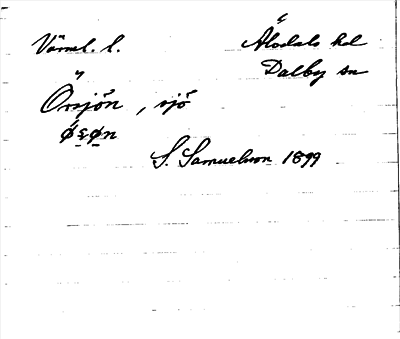 Värml. l.
Älvdals hd
Dalby sn
Örsjön, sjö
S. Samuelsson 1899